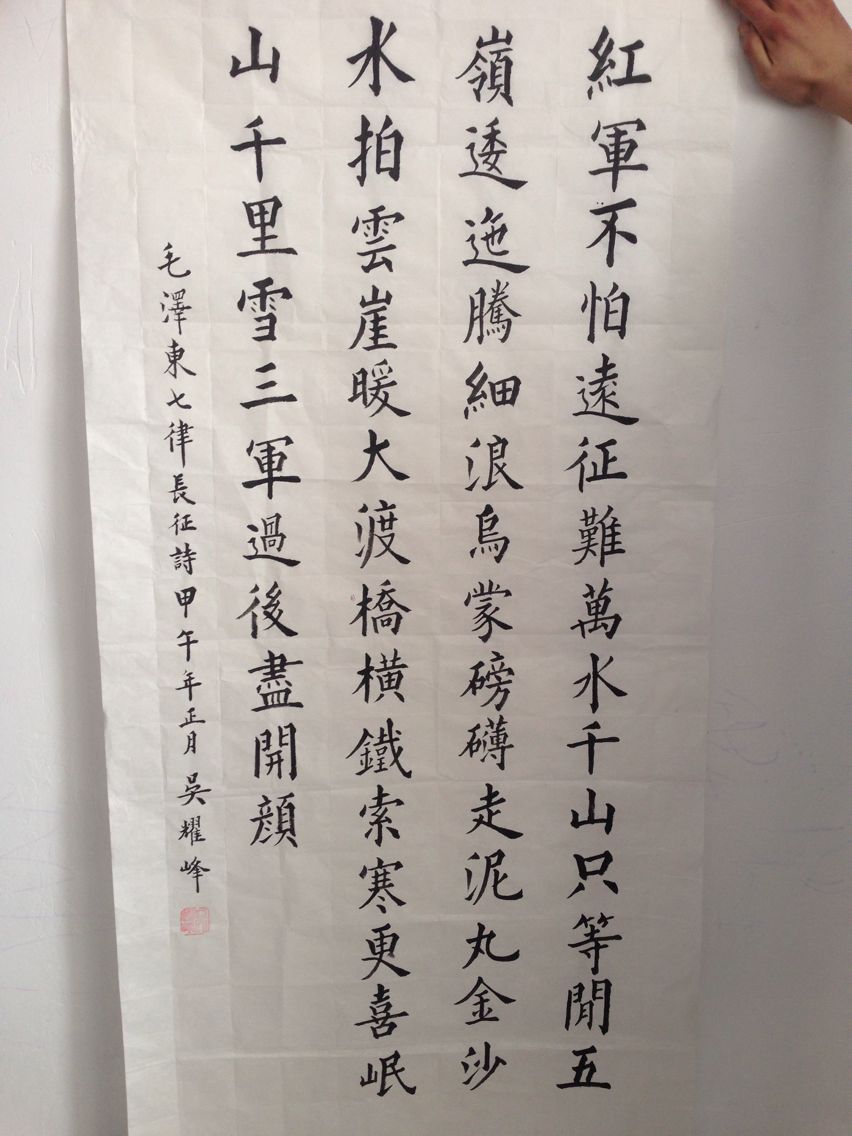 紅軍不怕遠征難萬水千山只等閒五
嶺逶迤騰細浪烏蒙磅礴走泥丸金沙
水拍雲崖暖大渡橋橫鐵索寒更喜岷
山千里雪三軍過後盡開顔
毛澤東七律長征詩甲午年正月吳耀峰